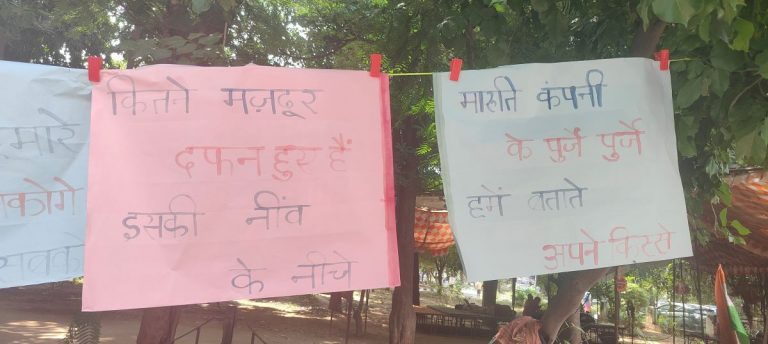 मारे
कोगे
सबको
कितने मज़दूर
दफन हुए हैं
इसकी नींव
के नीचे
मारुति कंपनी
के पुर्जे पुर्जे
हमें बताते
अपने किस्से